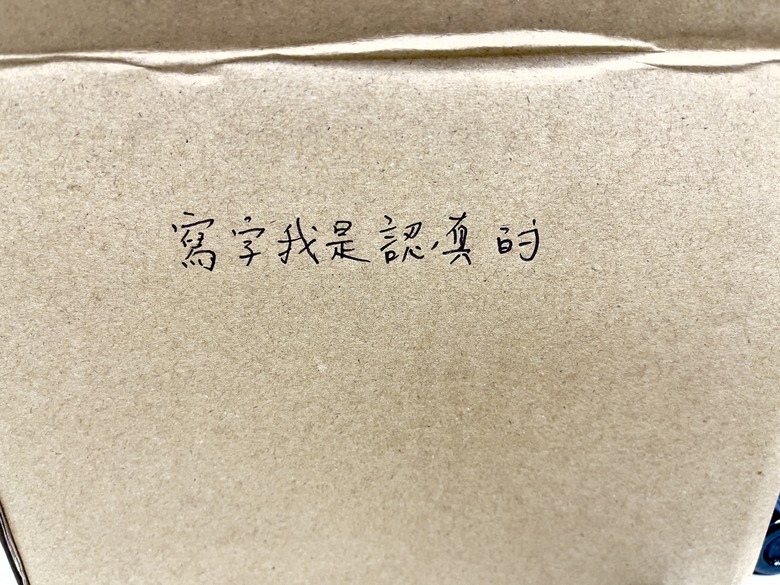 寫字我是認真的